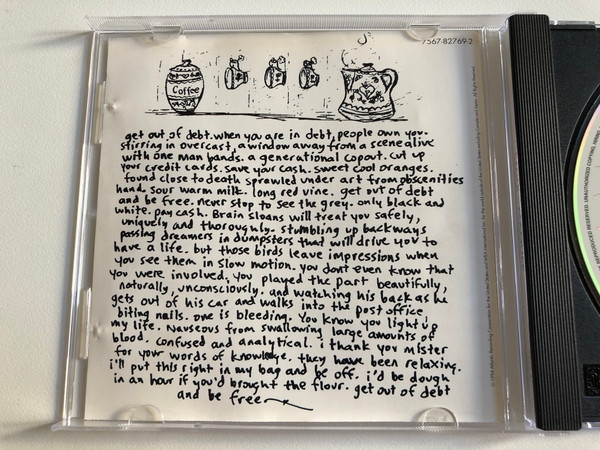 7567-82769-2
Coffee
get out of debt. when you are in debt, people own you.
stirring in overcast, a window away from a scene alive
with one man bands. a generational copout. cut up
your credit cards. save your cash. sweet cool oranges.
found close to death sprawled under art from obscenities
hand. sour warm milk. long red vine. get out of debt
and be free. never stop to see the grey. only black and
white. pay cash. Brain sloans will treat you safely,
uniquely and thoroughly. stumbling up backways
passing dreamers in dumpsters that will drive you to
have a life. but those birds leave impressions when
you see them in slow motion. you dont even know that
you were involved. you played the part beautifully,
naturally, unconsciously. and watching his back as he
gets out of his car and walks into the post office
biting nails. one is bleeding. You know you light up
my life. Nauseous from swallowing large amounts of
blood. confused and analytical. i thank you mister
for your words of knowledge. they have been relaxing.
i'll put this right in my bag and be off. i'd be dough
in an hour if you'd brought the flour. get out of debt
and be free